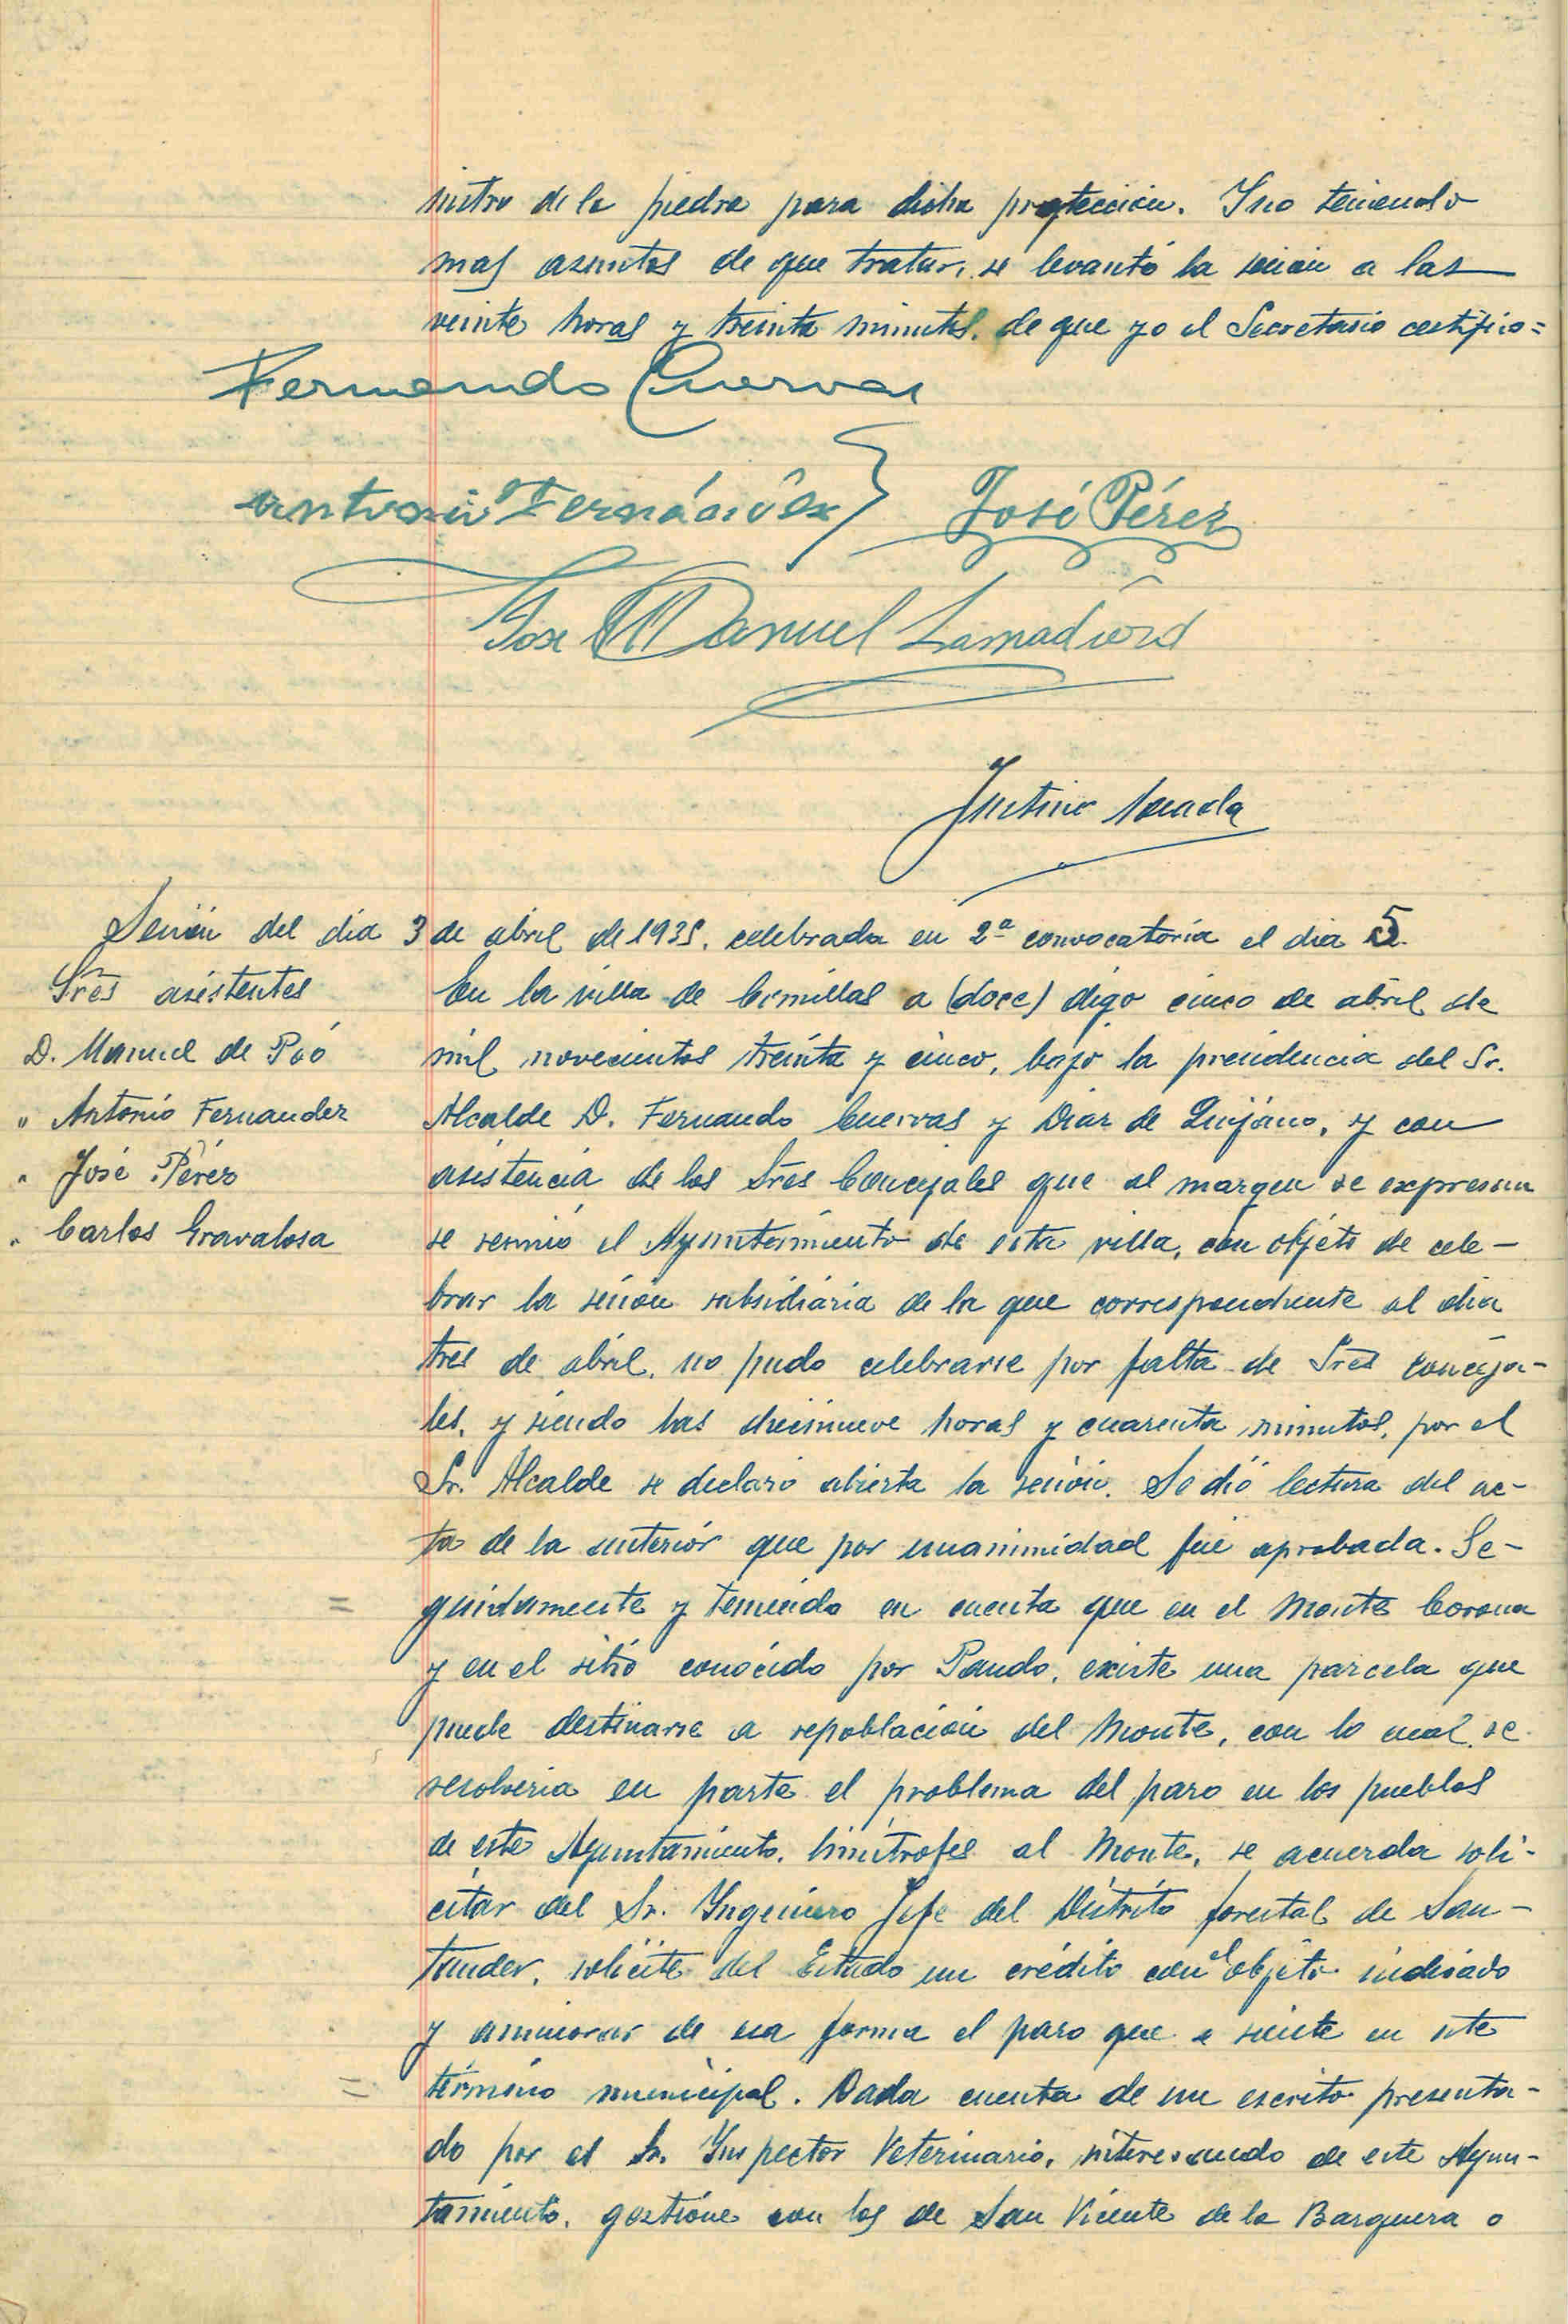 nistro de la piedra para dicha protección. Y no teniendo
mas asuntos de que tratar, se levantó la sesion a las
veinte horas y treinta minutos, de que yo el Secretario certifico=
Fernando Cuervas
Antonio Fernández José Pérez
Jose Manuel Lamadrid
Justino
Sesión del dia 3 de abril de 1935, celebrada en 2ª convocatoria el dia 5.
Sres asistentes
D. Manuel de Poó
" Antonio Fernandez
" José Pérez
" Carlos Gravalosa
En la villa de Comillas a (doce) digo cinco de abril de
mil novecientos treinta y cinco, bajo la presidencia del Sr.
Alcalde D. Fernando Cuervas y Diaz de Quijano, y con
asistencia de los Sres Concejales que al margen se expresan
se reunió el Ayuntamiento de esta villa, con objeto de cele-
brar la sesion subsidiaria de la que correspondiente al dia
tres de abril, no pudo celebrarse por falta de Sres conceja-
les, y siendo las diecinueve horas y cuarenta minutos, por el
Sr. Alcalde se declaró abierta la sesión. Se dió lectura del ac-
ta de la anterior que por unanimidad fué aprobada. Se-
= guidamente y teniendo en cuenta que en el Monte Corona
y en el sitio conocido por Pando, existe una parcela que
puede destinarse a repoblación del Monte, con lo cual se
resolveria en parte el problema del paro en los pueblos
de este Ayuntamiento, limítrofes al Monte, se acuerda soli-
citar del Sr. Yngeniero Jefe del Distrito forestal de San-
tander, solicite del Estado un crédito con el objeto indicado
y aminorar de esa forma el paro que se siente en este
= término municipal. Dada cuenta de un escrito presenta-
do por el Sr. Ynspector Veterinario, interesando de este Ayun-
tamiento, gestione con los de San Vicente de la Barquera o